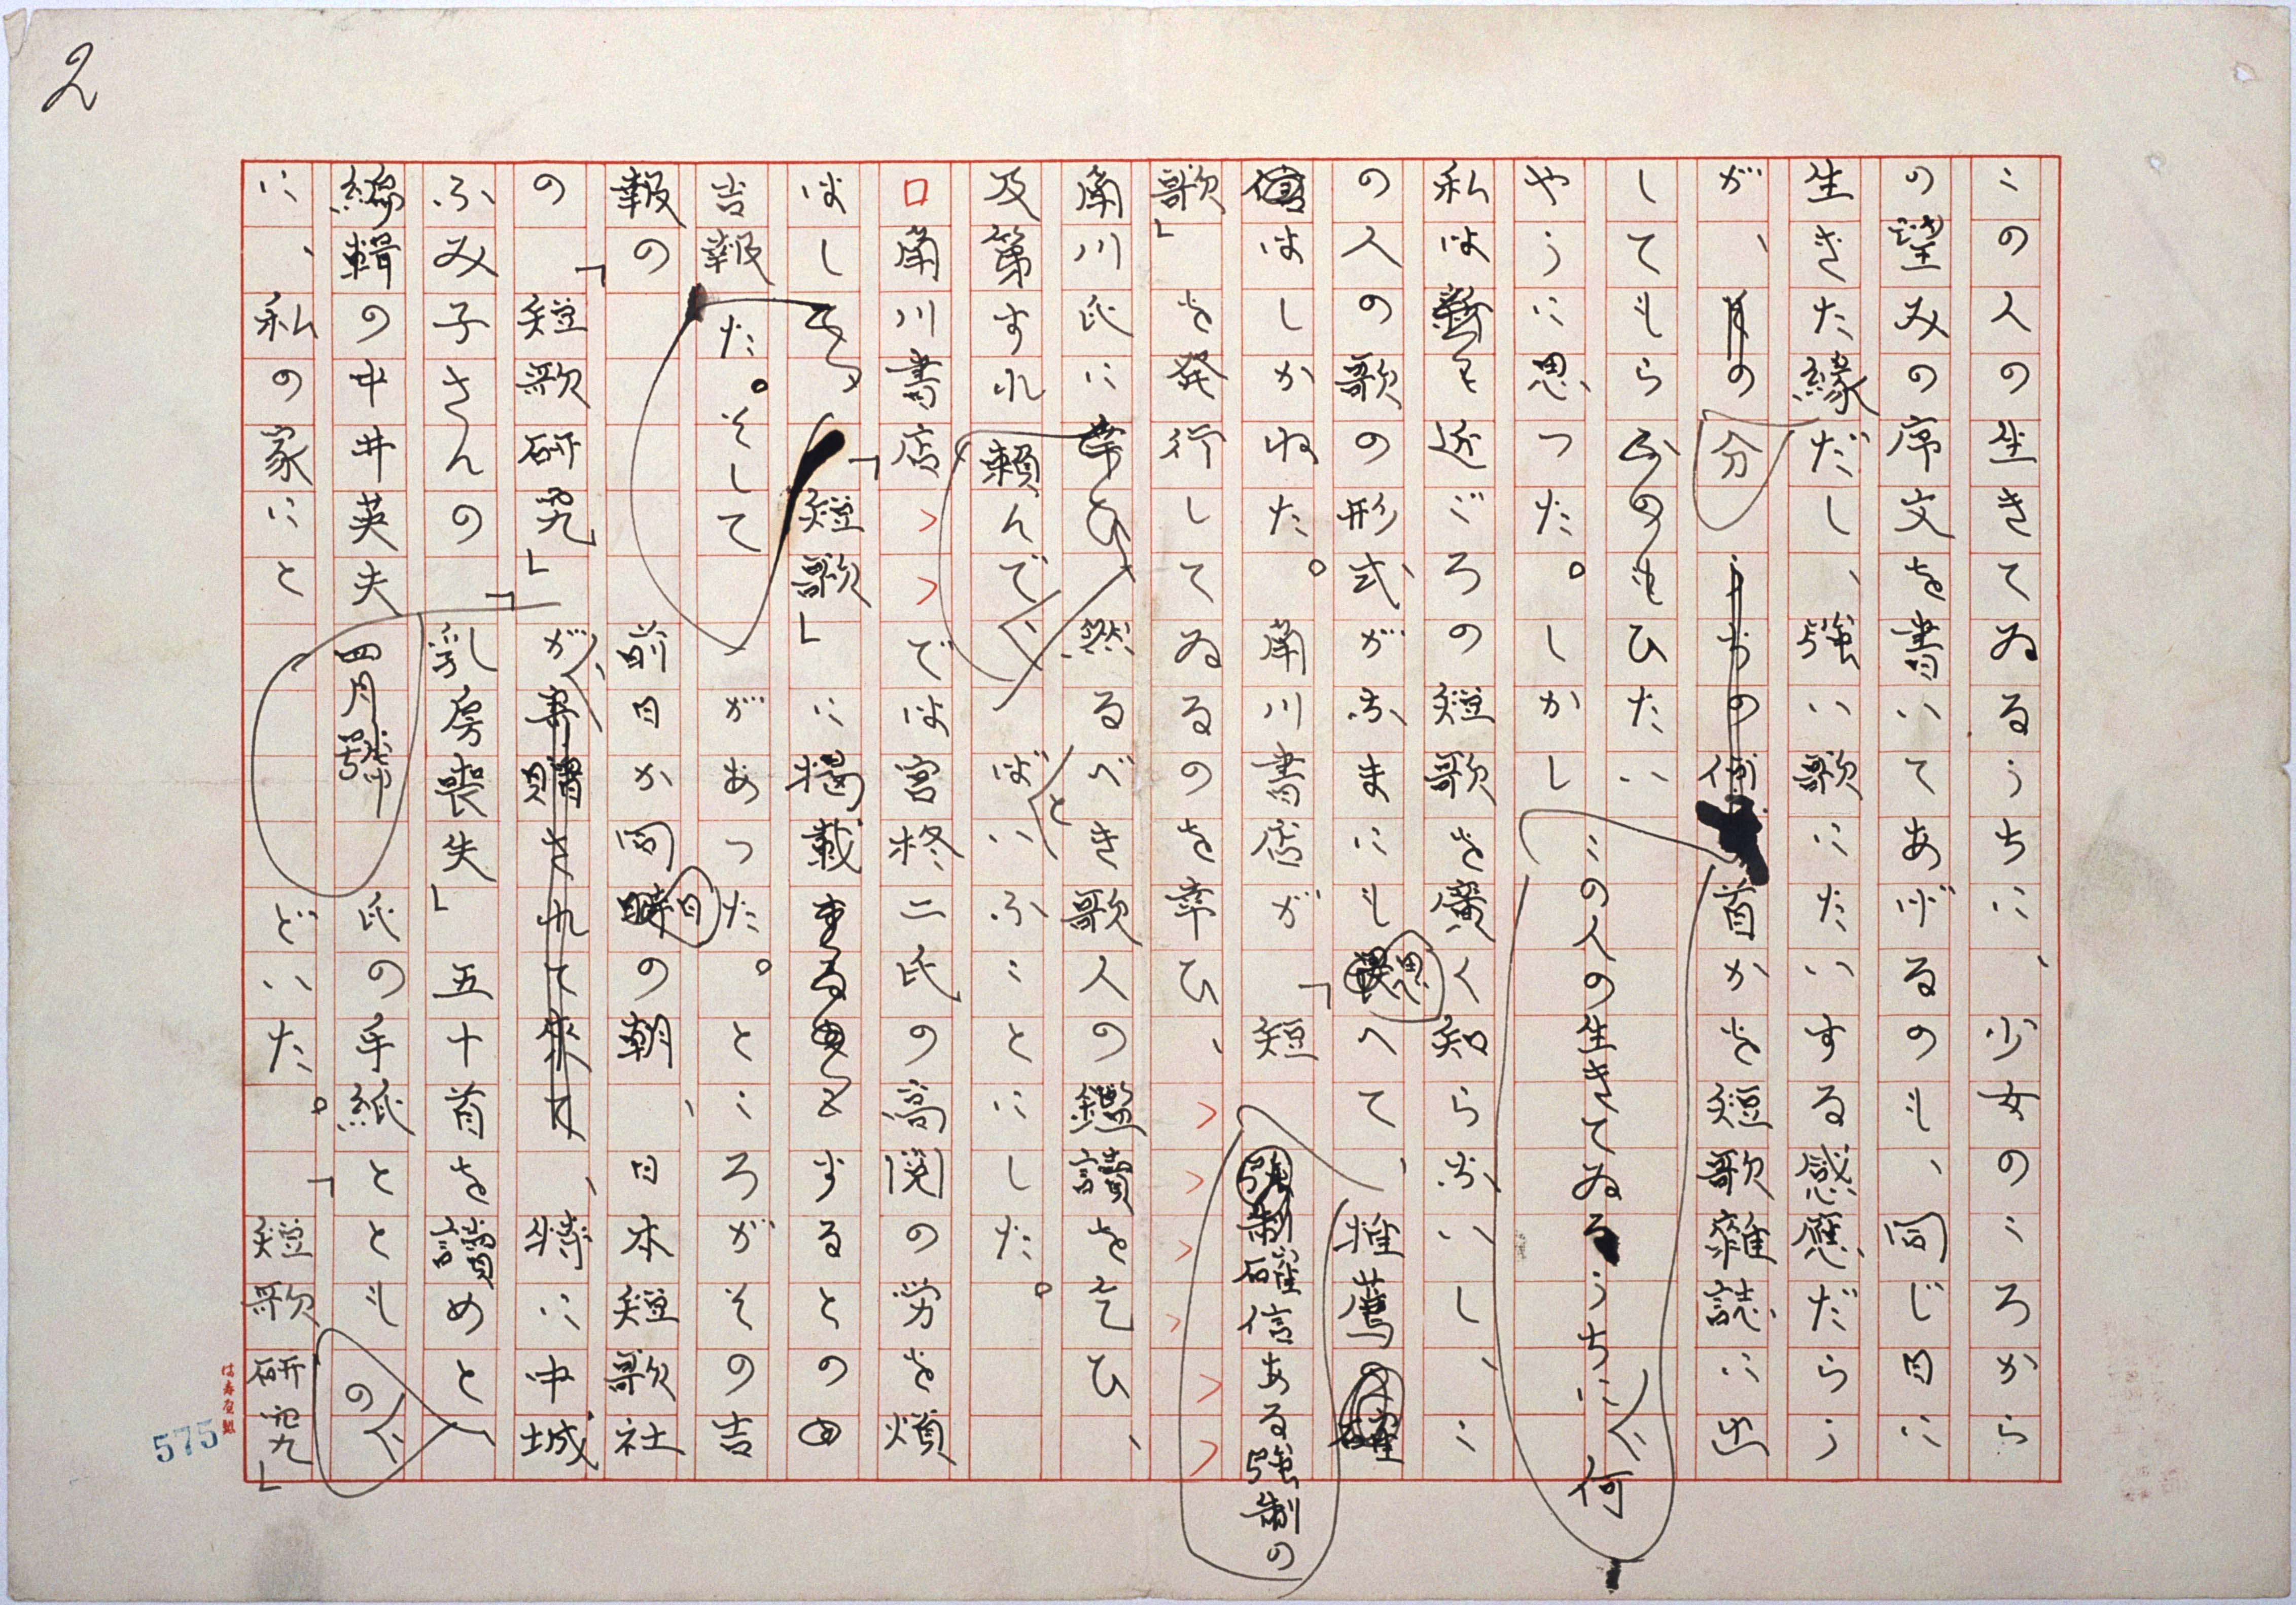 2
この人の生きてゐるうちに、少女のころから
の望みの序文を書いてあげるのも、同じ月に
生きた縁だし、強い歌にたいする感応だらう
が、の分首かを短歌雑誌に出
この人の生きてゐるうちに、何
してもらふのもひたい
やうに思つた。しかし
私は近ごろの短歌を廣く知らないし、こ
の人の歌の形式がなまにも思へて、推薦の
強制の確信ある強制の
はしかねた。角川書店が「短
歌」を発行してゐるのを幸ひ、
角川氏に然るべき歌人の鑑讀を乞ひ、
及第すれば頼んで、といふことにした。
角川書店では宮柊二氏の高閲の労を煩
はして、「短歌」に掲載するとの
吉報があつた。ところがその吉
報のた。そして前日か同日の朝、日本短歌社
の「短歌研究」が、特に中城
ふみ子さんの「乳房喪失」五十首を讀めと
編輯の中井英夫氏の手紙とともに、
四月号の
に、私の家にとどいた。「短歌研究」
575